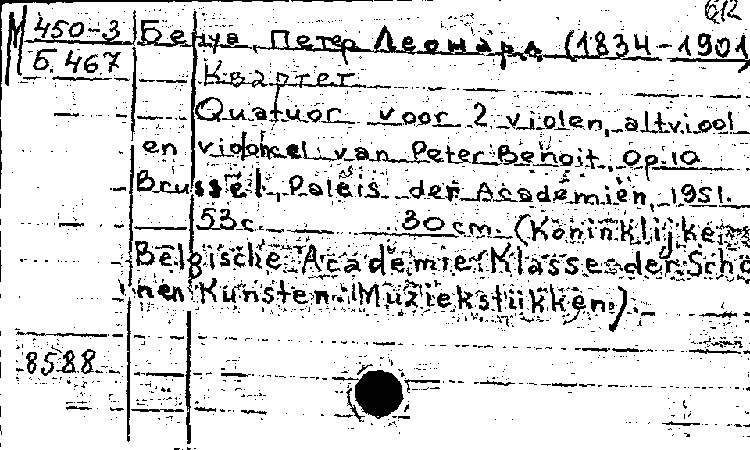 612
М 450-3 Бенуа, Петер Леонард (1834-1901)
Б. 467
Квартет
Quatuor voor 2 violen, altviool
en violoncel van Peter Benoit, op.10
Brussel, Paleis der Academiën, 1951.
53 c. 30 cm. (Koninklijke
Belgische Academie. Klasse der Scho
nen Kunsten. Muziekstukken.).
8588